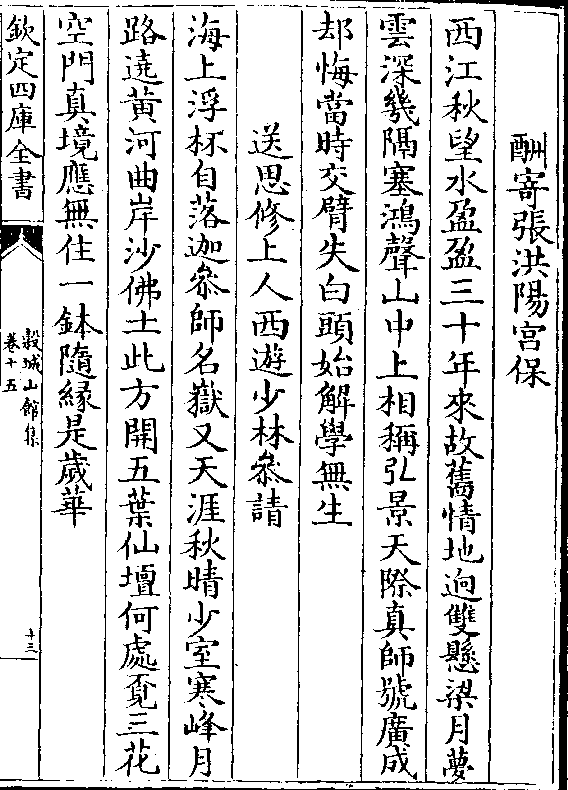 酬寄張洪陽宮保
西江秋望水盈盈三十年來故舊情地逈雙懸梁月夢
雲深幾隔塞鴻聲山中上相稱弘景天際真師號廣成
却悔當時交臂失白頭始解學無生
送思修上人西遊少林叅請
海上浮杯自落迦叅師名嶽又天涯秋晴少室寒峰月
路遶黃河曲岸沙佛土此方開五葉仙壇何處覔三花
空門真境應無住一鉢隨緣是歲華
欽定四庫全書
榖城山館集
卷十五
十三